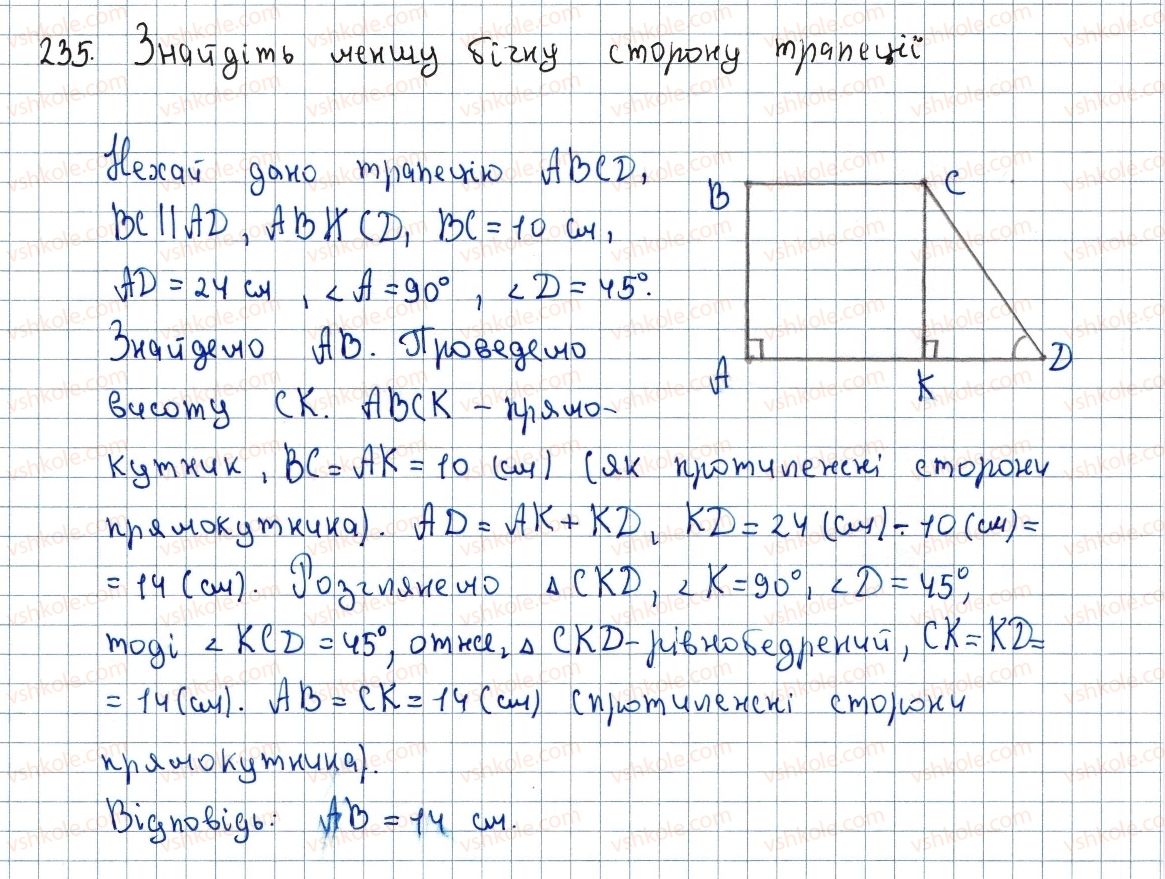 235. Знайдіть меншу бічну сторону трапеції
Нехай дано трапецію ABCD,
BC || AD, AB ∦ CD, BC = 10 см,
AD = 24 см, ∠A = 90°, ∠D = 45°.
Знайдемо AB. Проведемо
висоту CK. ABCK - прямо-
кутник, BC = AK = 10 (см) (як протилежні сторони
прямокутника). AD = AK + KD, KD = 24 (см) - 10 (см) =
= 14 (см). Розглянемо △CKD, ∠K = 90°, ∠D = 45°,
тоді ∠KCD = 45°, отже, △CKD - рівнобедрений, CK = KD =
= 14 (см). AB = CK = 14 (см) (протилежні сторони
прямокутника).
Відповідь: AB = 14 см.
B
C
A
K
D
vshkole.com